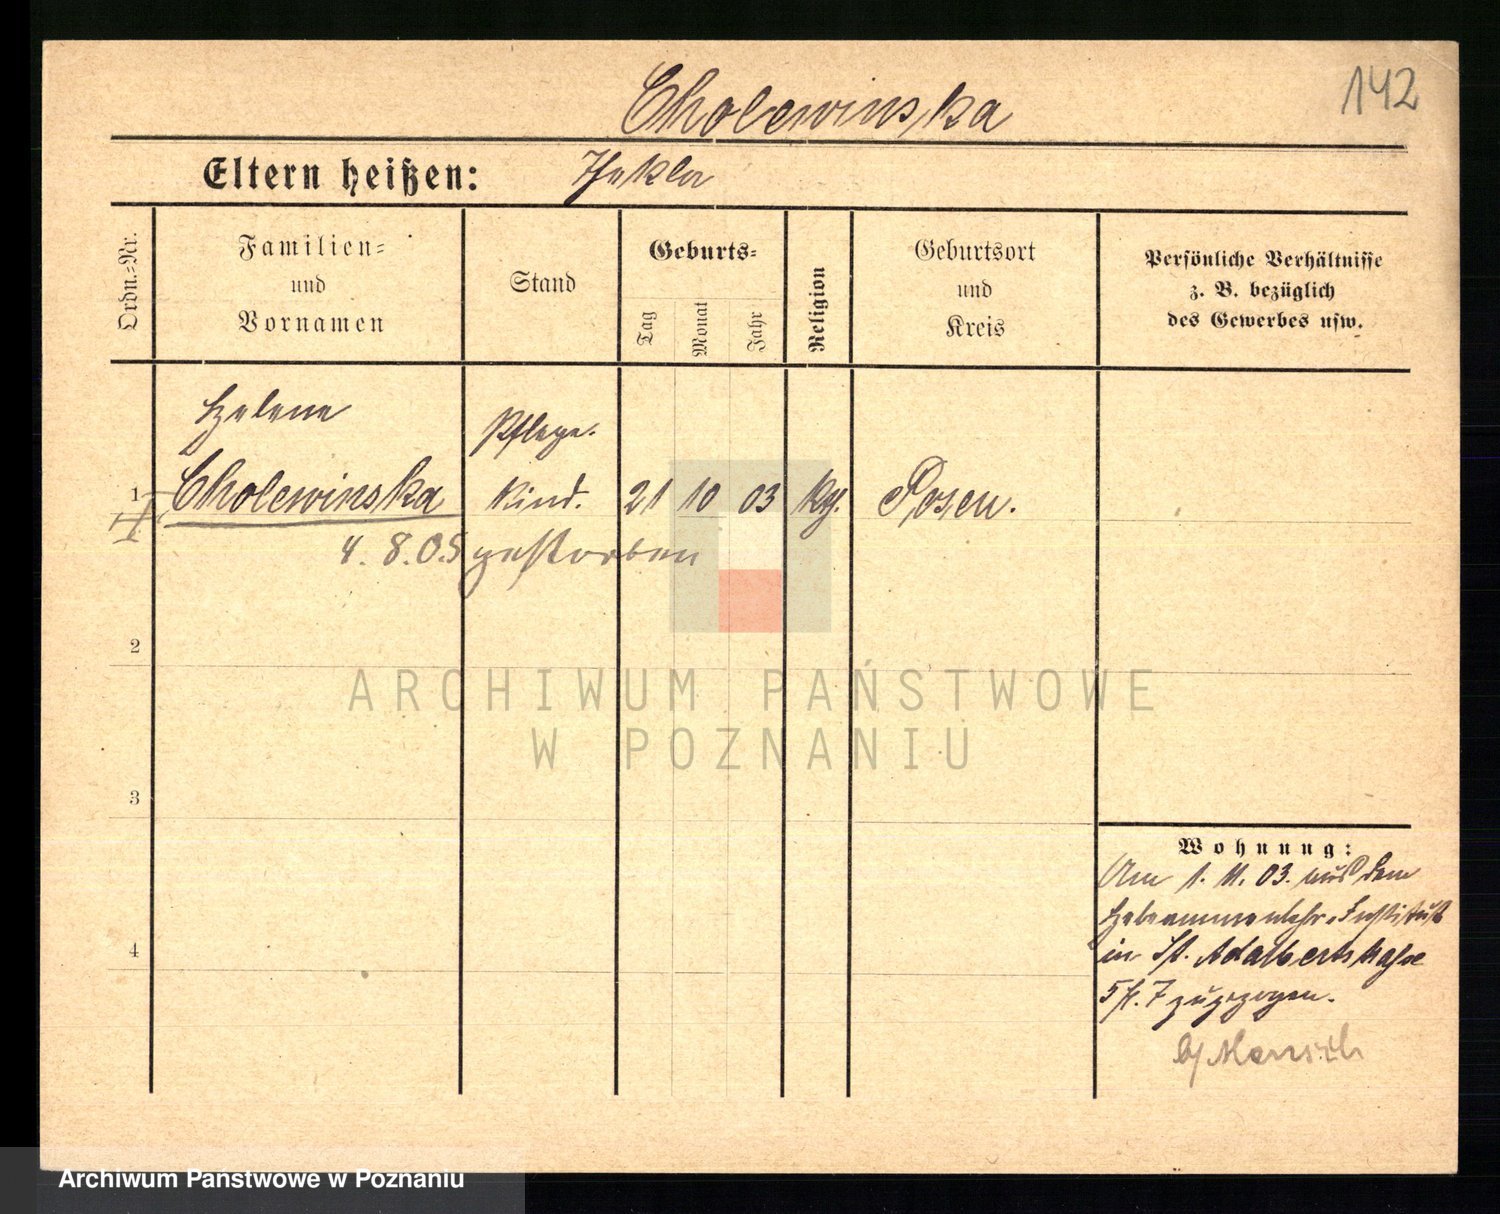 142
Cholewinska
Eltern heißen: Thekla
Ordn.-Nr.
Familien-
und
Vornamen
Stand
Geburts-
Tag
Monat
Jahr
Religion
Geburtsort
und
Kreis
Persönliche Verhältnisse
z. B. bezüglich
des Gewerbes usw.
Helene
Pflege-
1 Cholewinska kind. 21 10 03 kg. Posen.
4. 8. 05 gestorben
2
ARCHIWUM PAŃSTWOWE
W POZNANIU
3
Wohnung:
Am 1. 11. 03. aus dem
Hebeammenlehr-Institut
in St. Adalbertstraße
zugezogen.
4
b/
Archiwum Państwowe w Poznaniu